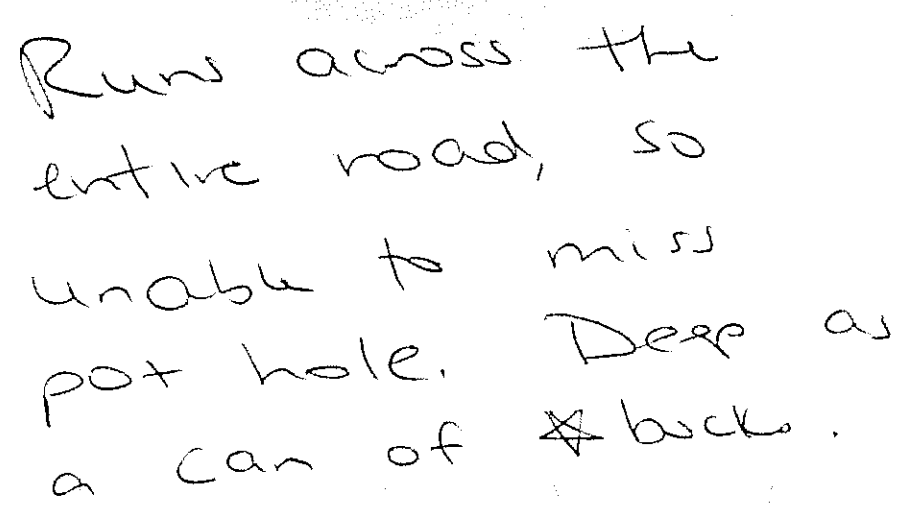 Runs across the
entire road, so
unable to miss
pot hole. Deep as
a can of ☆bucks.